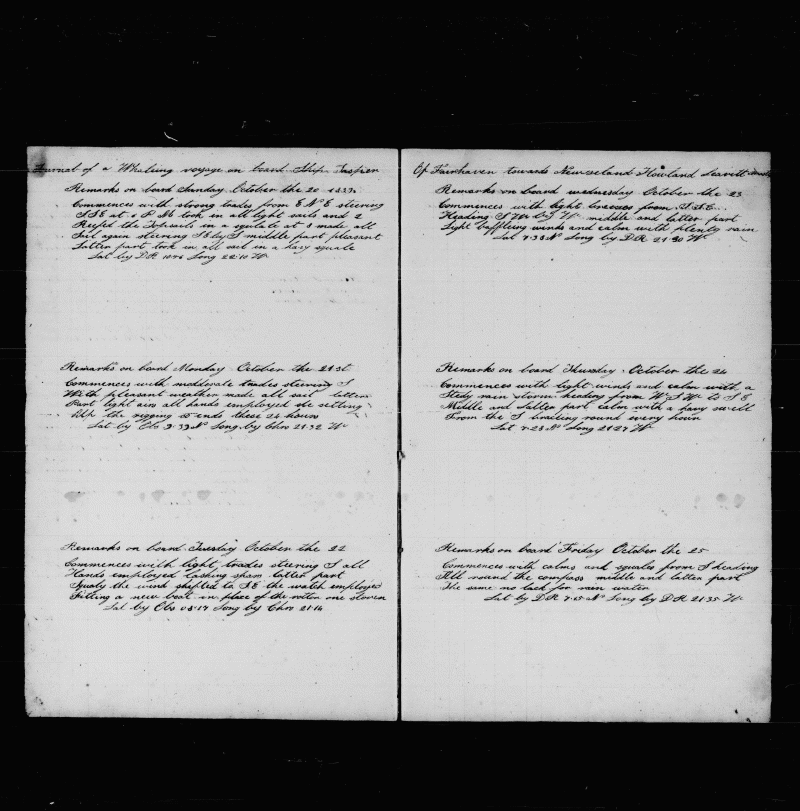 Journal of a Whaling voyage on board Ship Jasper
Remarks on board Sunday October the 20 1839
Commences with strong trades from E N E steering
S S E at 1 P M took in all light sails and 2
Reefed the Topsails in a squale at 8 made all
Sail again steering S by middle part pleasant
Latter part took in all sail in a havy squale
Lat by D R Long 22:10 W
Remarks on board Monday October the 21st
Commences with moderate trades steering S
With pleasant weather made all sail latter
Part light airs all hands employed the setting
Up the rigging so ends these 24 hours
Lat by Obs 9:39 N Long by Chro 21:32 W
Remarks on board Tuesday October the 22
Commences with light trades steering S all
Hands employed lashing latter part
Squaly the wind shifted to S E the watch employed
Fitting a new boat in place of the one stoven
Lat by Obs 08:17 Long by Chro 21:14
Of Fairhaven towards Newzeland Howland Leavitt
Remarks on board wednesday October the 23
Commences with light breeses from S S E
Heading S W by W middle and latter part
Light baffleing winds and calm with plenty rain
Lat 7:38 N Long by D R 21:30 W
Remarks on board Thursday October the 24
Commences with light winds and calm with a
Stedy rain storm heading from W S W to S E
Middle and Latter part calm with a havy swell
From the S boxing round every hour
Lat 7:28 N Long 21:27 W
Remarks on board Friday October the 25
Commences with calms and squales from S heading
All round the compass middle and latter part
The same no lack for rain water
Lat by D R 7:15 N Long by D R 21:35 W